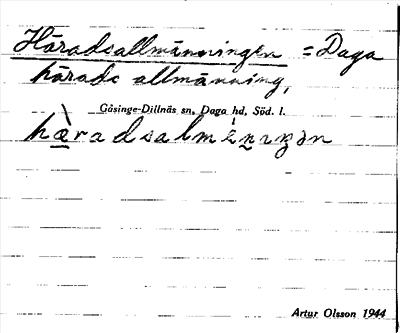 Häradsallmänningen = Daga
härads allmänning,
Gåsinge-Dillnäs sn, Daga hd, Söd. l.
hæ̀radsalménıŋən
Artur Olsson 1944